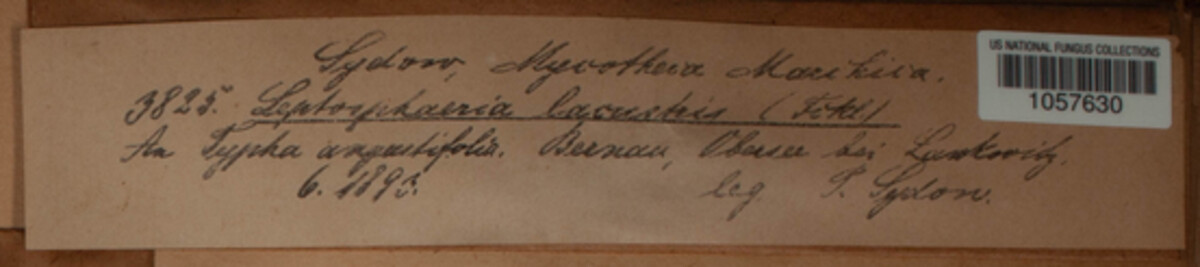 Sydow, Mycotheca Marchica.
US NATIONAL FUNGUS COLLECTIONS
1057630
3825. Leptosphaeria lacustris (Fckl.)
An Typha angustifolia. Bernau, Obersee bei Lankwitz.
6. 189
leg P. Sydow.